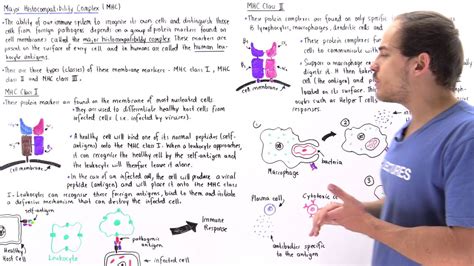 Major Histocompatibility Complex (MHC)
• The ability of our immune system to recognize its own cells and distinguish these
cells from foreign pathogens depends on a group of protein markers found on
cell membranes called the major histocompatibility complex. These markers are
present on the surface of every cell and in humans are called the human leu-
kocyte antigens.
• There are three types (classes) of these membrane markers - MHC class I, MHC
class II and MHC class III.
MHC Class I
• These protein markers are found on the membrane of most nucleated cells
• They are used to differentiate healthy host cells from
infected cells (i.e. infected by viruses).
• A healthy cell will bind one of its normal peptides (self-
antigens) onto the MHC class I. When a leukocyte approaches,
it can recognize the cell by the self-antigen and the
leukocyte will therefore leave it alone.
• In the case of an infected cell, the cell will produce a viral
peptide (antigen) and will place it onto the MHC class
I. Leukocytes can recognize these foreign antigens, bind to them and initiate
a defensive mechanism that can destroy the infected cells.
cell membrane
self-antigen
Healthy
Host Cell
Leukocyte
pathogenic
antigen
infected cell
Immune
Response
MHC Class II
• These protein complexes are found on only specific
lymphocytes, macrophages, dendritic cells and
• These protein complexes
cells to communicate with
• Suppose a macrophage
digests it. It then takes
cell (the antigen) and
located on its surface. This
cytes such as Helper T cells
cell membrane
Macrophage
bacteria
①
②
③
Plasma cell
Cytotoxic
antibodies specific
to the antigen
LECTURES